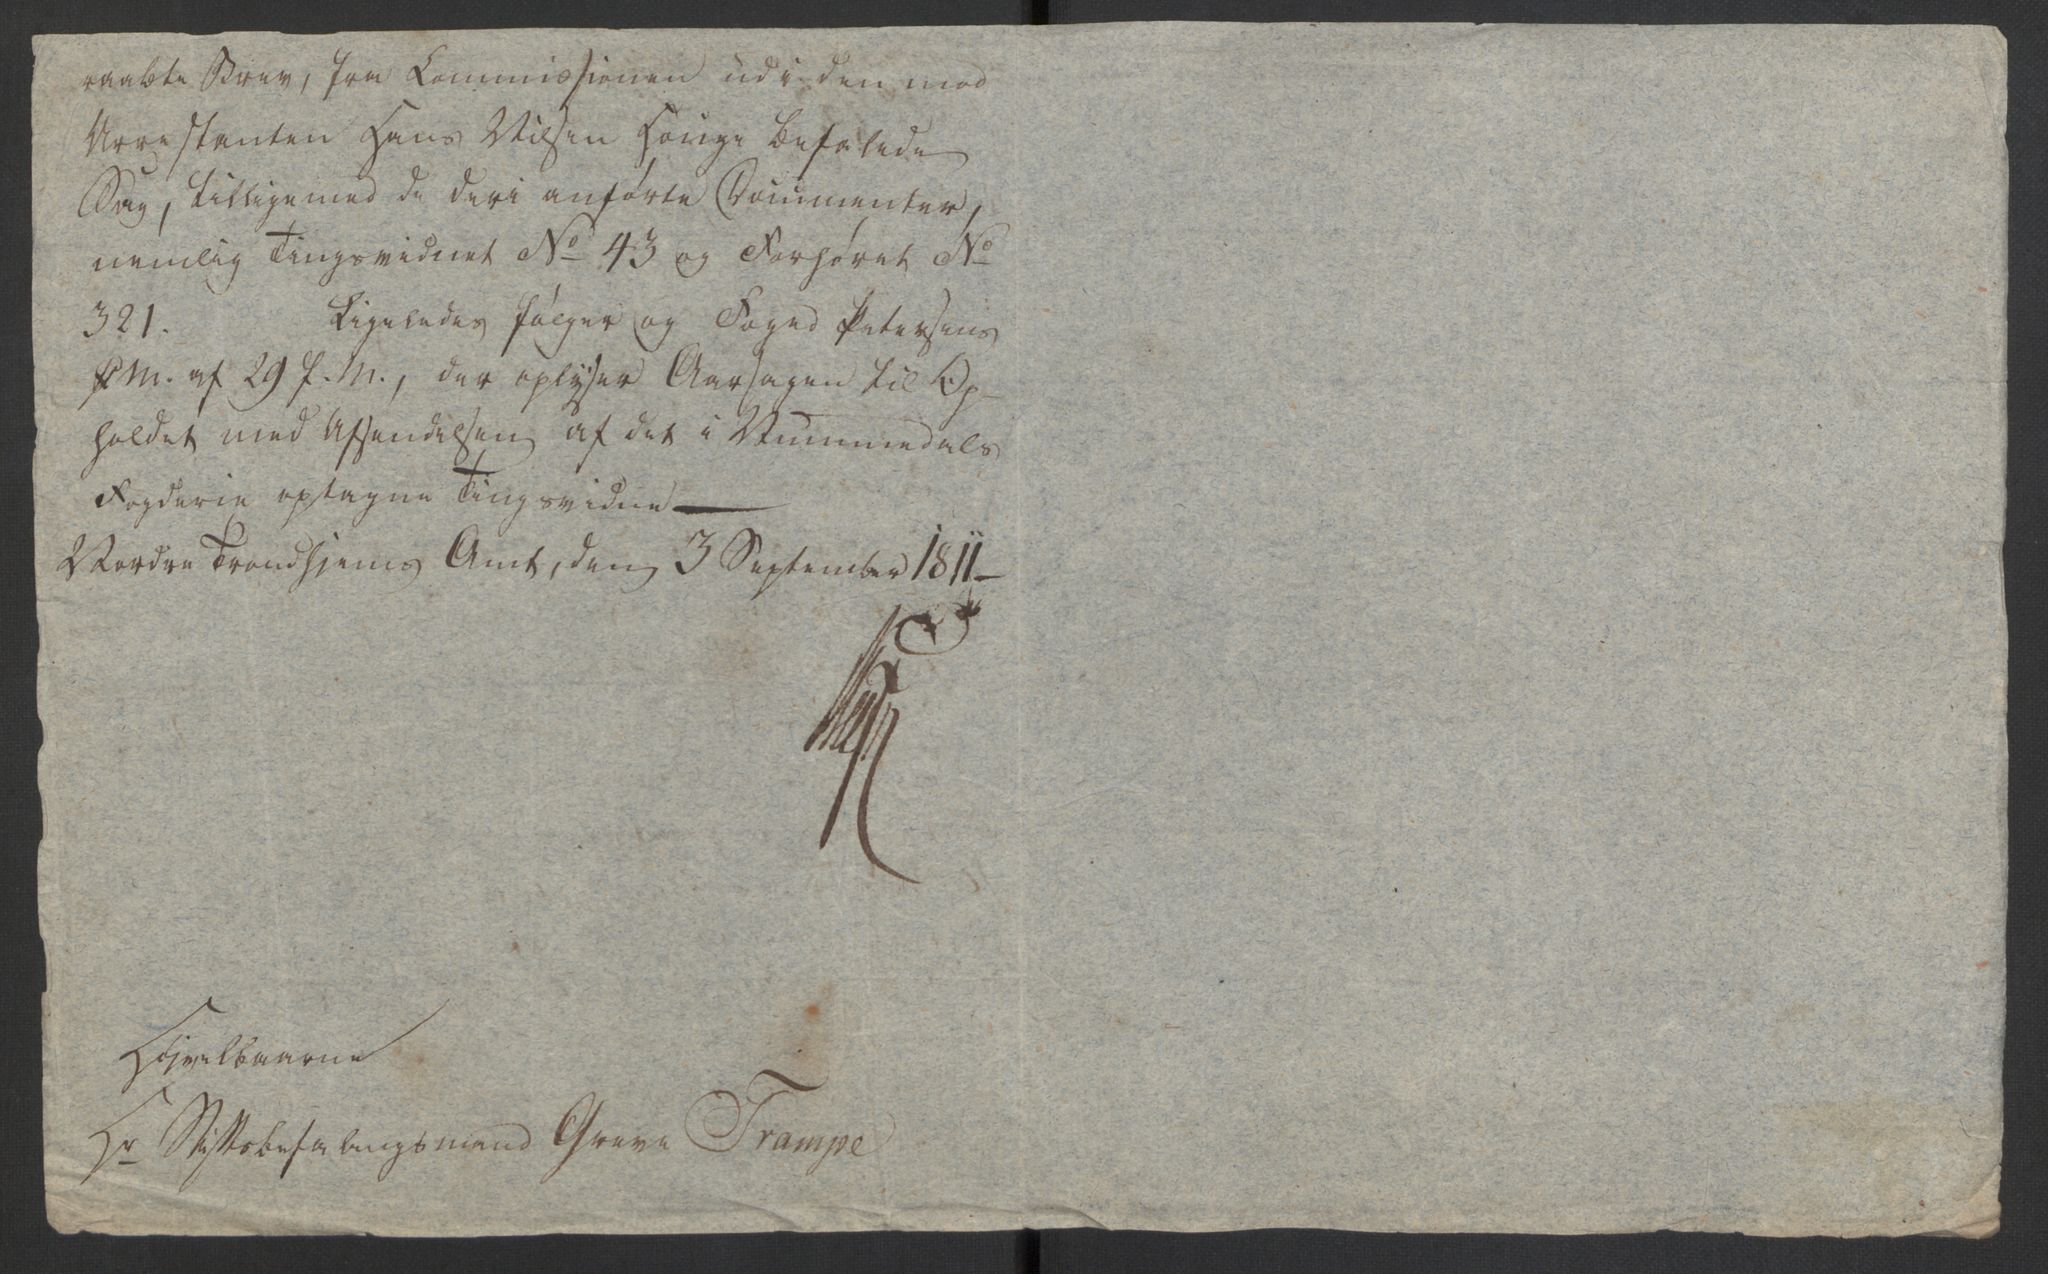 raabte Brev, fra Commissionen udi den mod
Arrestanten Hans Nilsen Houge befalede
Sag, tilligemed de deri anførte Documenter,
nemlig Tingsvidnet No 43 og Forhøret No
321. Ligeledes følger og Foged Petersens
P.M. af 29 f. M., der oplyser Aarsagen til Op-
holdet med Afsendelsen af det i Nummedals
Fogderie optagne Tingsvidne
Nordre Trondhjems Amt, den 3 September 1811
Høivelbaarne
Hr Stiftsbefalingsmand Greve Trampe